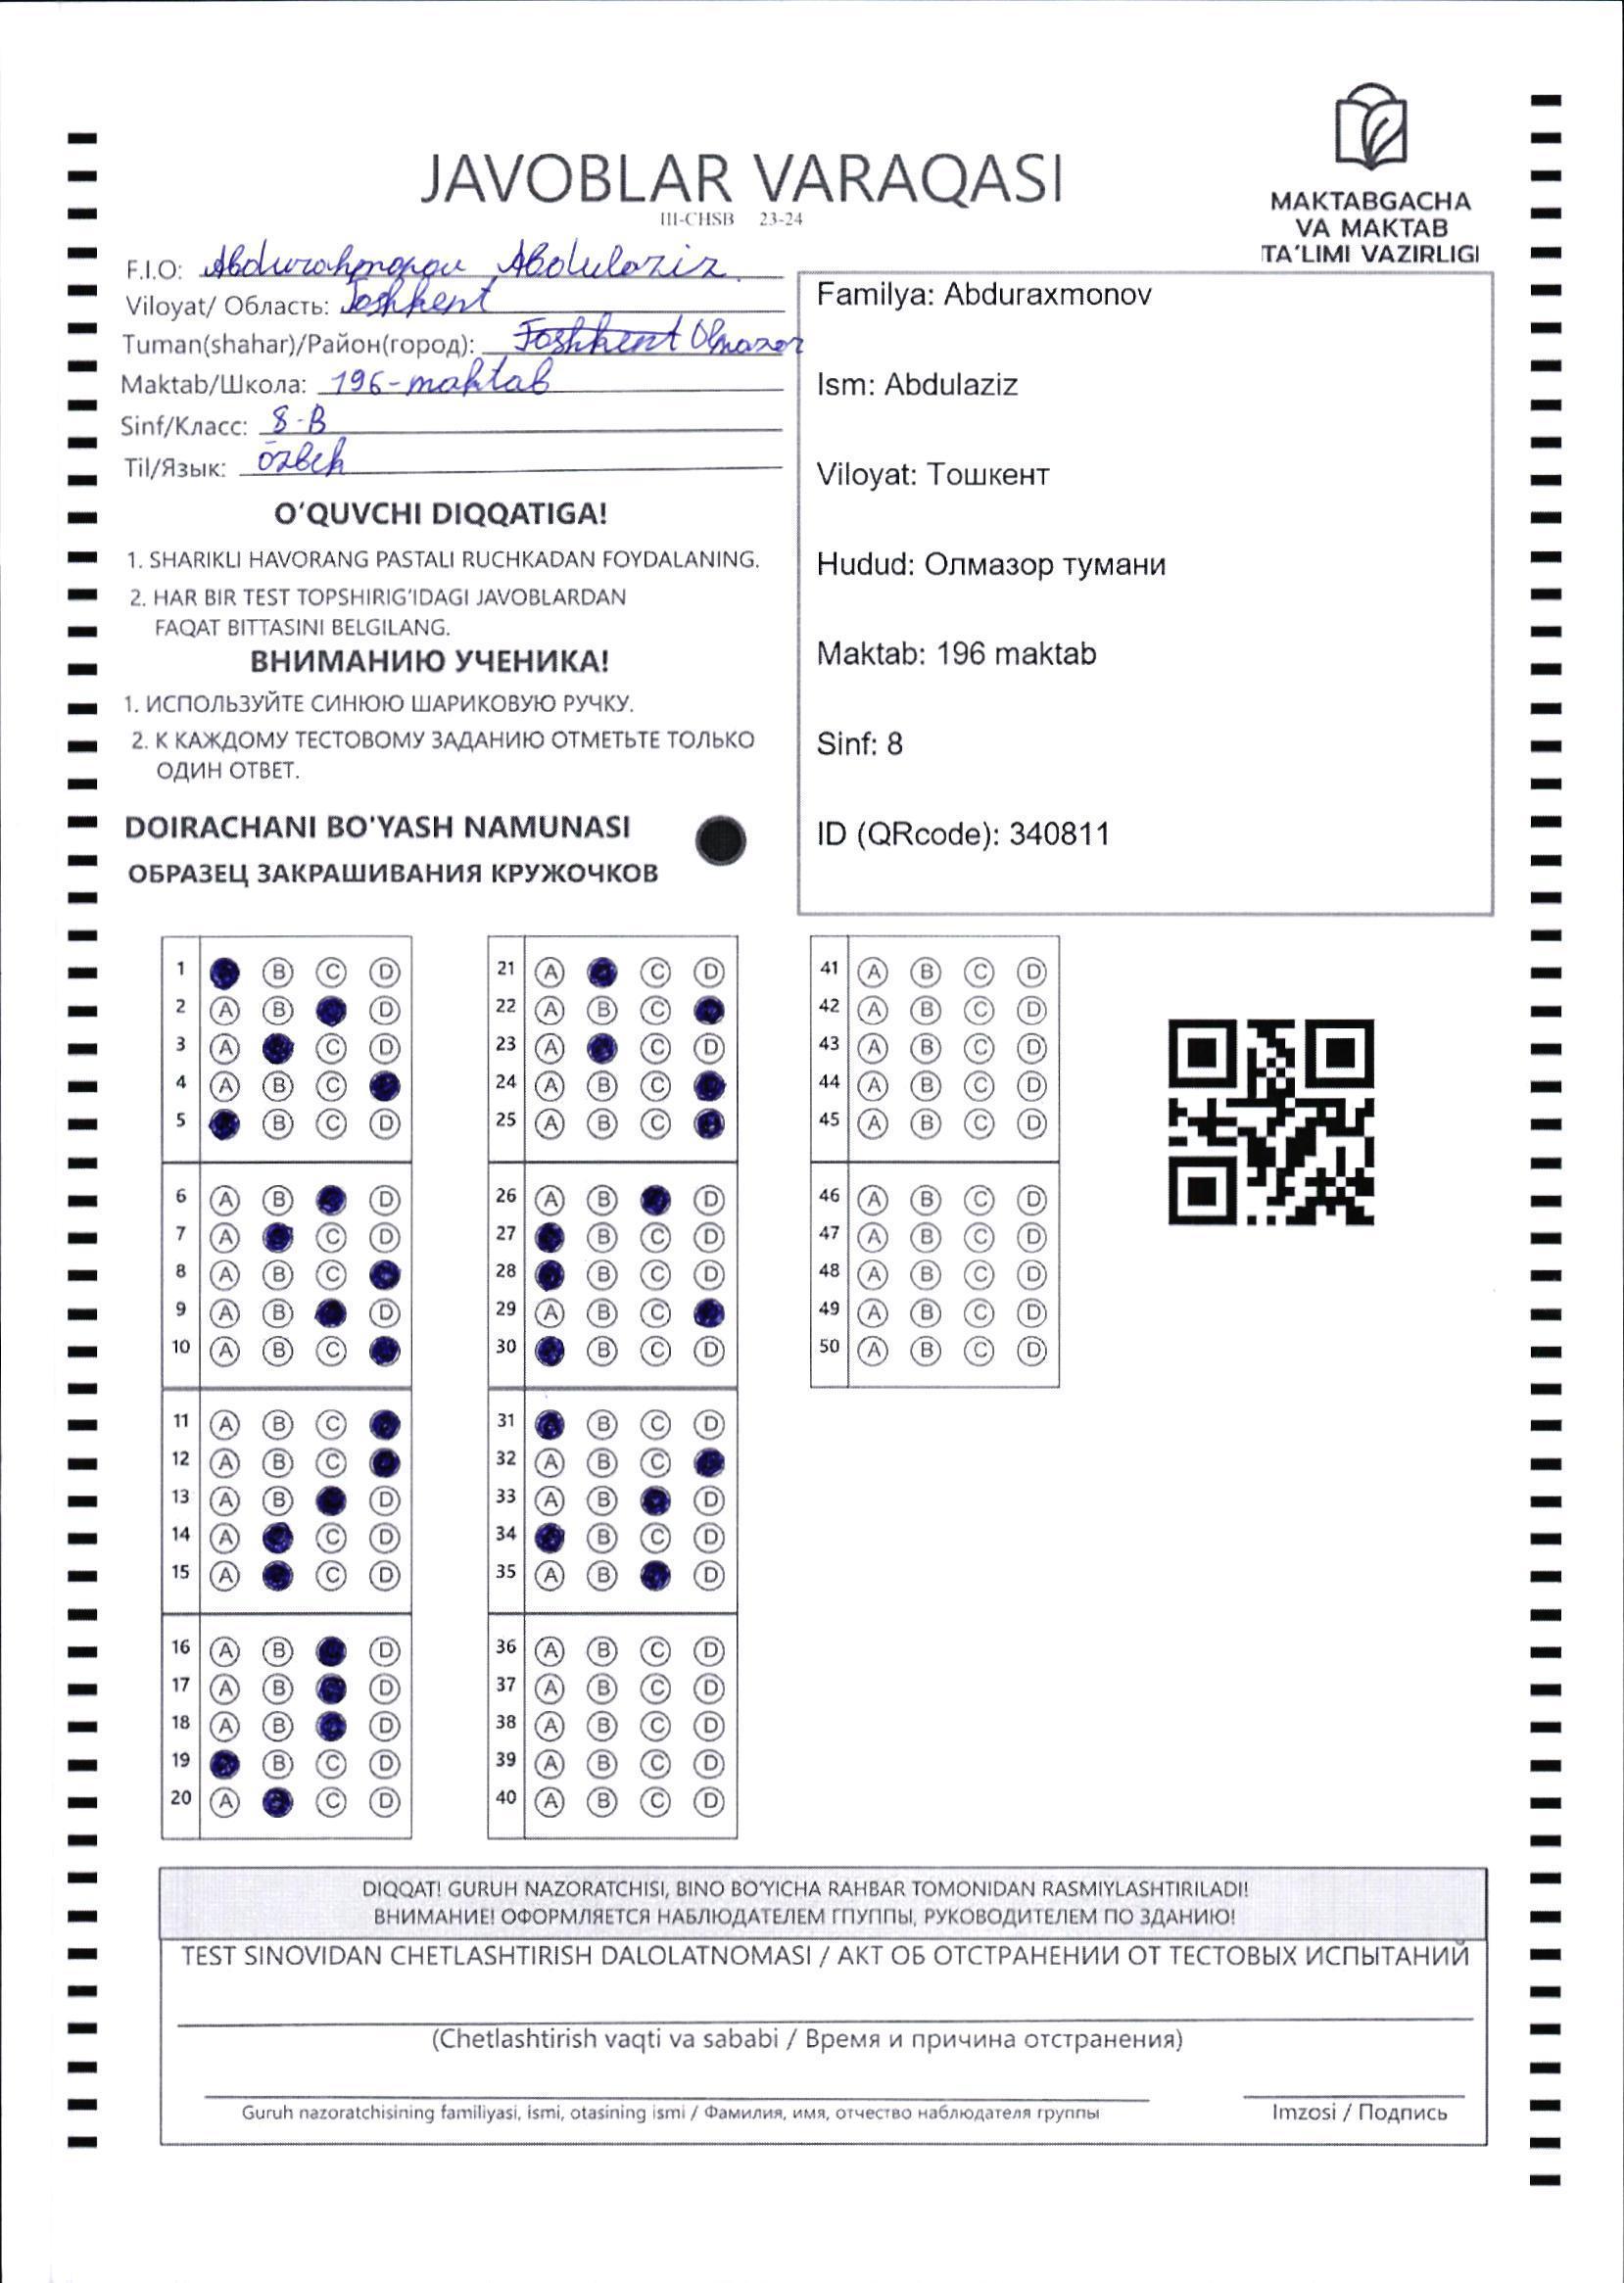 JAVOBLAR VARAQASI
III-CHSB 23-24
MAKTABGACHA
VA MAKTAB
TA'LIMI VAZIRLIGI
F.I.O: Abdurahmonov Abdulaziz
Viloyat/ Область: Toshkent
Tuman(shahar)/Район(город): Toshkent Olmazor
Maktab/Школа: 196-maktab
Sinf/Класс: 8-B
Til/Язык: özbek
Familya: Abduraxmonov
Ism: Abdulaziz
Viloyat: Тошкент
Hudud: Олмазор тумани
Maktab: 196 maktab
Sinf: 8
ID (QRcode): 340811
O'QUVCHI DIQQATIGA!
1. SHARIKLI HAVORANG PASTALI RUCHKADAN FOYDALANING.
2. HAR BIR TEST TOPSHIRIG'IDAGI JAVOBLARDAN
FAQAT BITTASINI BELGILANG.
ВНИМАНИЮ УЧЕНИКА!
1. ИСПОЛЬЗУЙТЕ СИНЮЮ ШАРИКОВУЮ РУЧКУ.
2. К КАЖДОМУ ТЕСТОВОМУ ЗАДАНИЮ ОТМЕТЬТЕ ТОЛЬКО
ОДИН ОТВЕТ.
DOIRACHANI BO'YASH NAMUNASI
ОБРАЗЕЦ ЗАКРАШИВАНИЯ КРУЖОЧКОВ
1 B C D
2 A B D
3 A C D
4 A B C
5 B C D
6 A B D
7 A C D
8 A B C
9 A B D
10 A B C
11 A B C
12 A B C
13 A B D
14 A C D
15 A C D
16 A B D
17 A B D
18 A B D
19 B C D
20 A C D
21 A C D
22 A B C
23 A C D
24 A B C
25 A B C
26 A B D
27 B C D
28 B C D
29 A B C
30 B C D
31 B C D
32 A B C
33 A B D
34 B C D
35 A B D
36 A B C D
37 A B C D
38 A B C D
39 A B C D
40 A B C D
41 A B C D
42 A B C D
43 A B C D
44 A B C D
45 A B C D
46 A B C D
47 A B C D
48 A B C D
49 A B C D
50 A B C D
DIQQAT! GURUH NAZORATCHISI, BINO BO'YICHA RAHBAR TOMONIDAN RASMIYLASHTIRILADI!
ВНИМАНИЕ! ОФОРМЛЯЕТСЯ НАБЛЮДАТЕЛЕМ ГПУППЫ, РУКОВОДИТЕЛЕМ ПО ЗДАНИЮ!
TEST SINOVIDAN CHETLASHTIRISH DALOLATNOMASI / АКТ ОБ ОТСТРАНЕНИИ ОТ ТЕСТОВЫХ ИСПЫТАНИЙ
(Chetlashtirish vaqti va sababi / Время и причина отстранения)
Guruh nazoratchisining familiyasi, ismi, otasining ismi / Фамилия, имя, отчество наблюдателя группы
Imzosi / Подпись